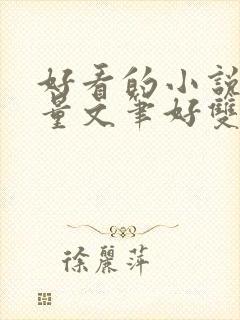 好看的小說
量文筆好雙
徐麗萍